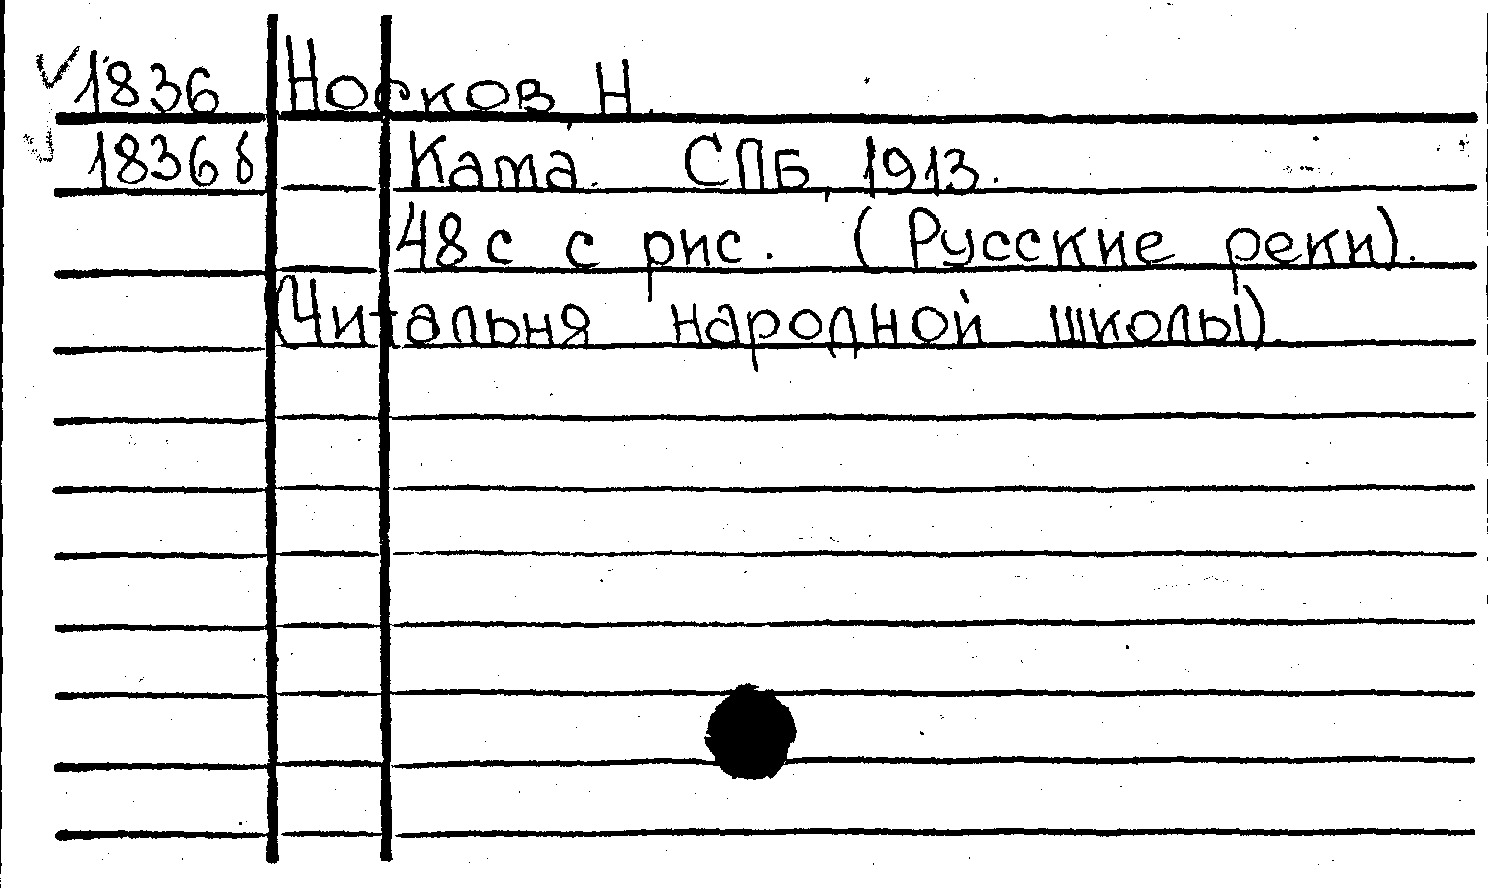 1836 Носков Н.
1836б Кама. СПБ, 1913.
48 с с рис. (Русские реки).
(Читальня народной школы).